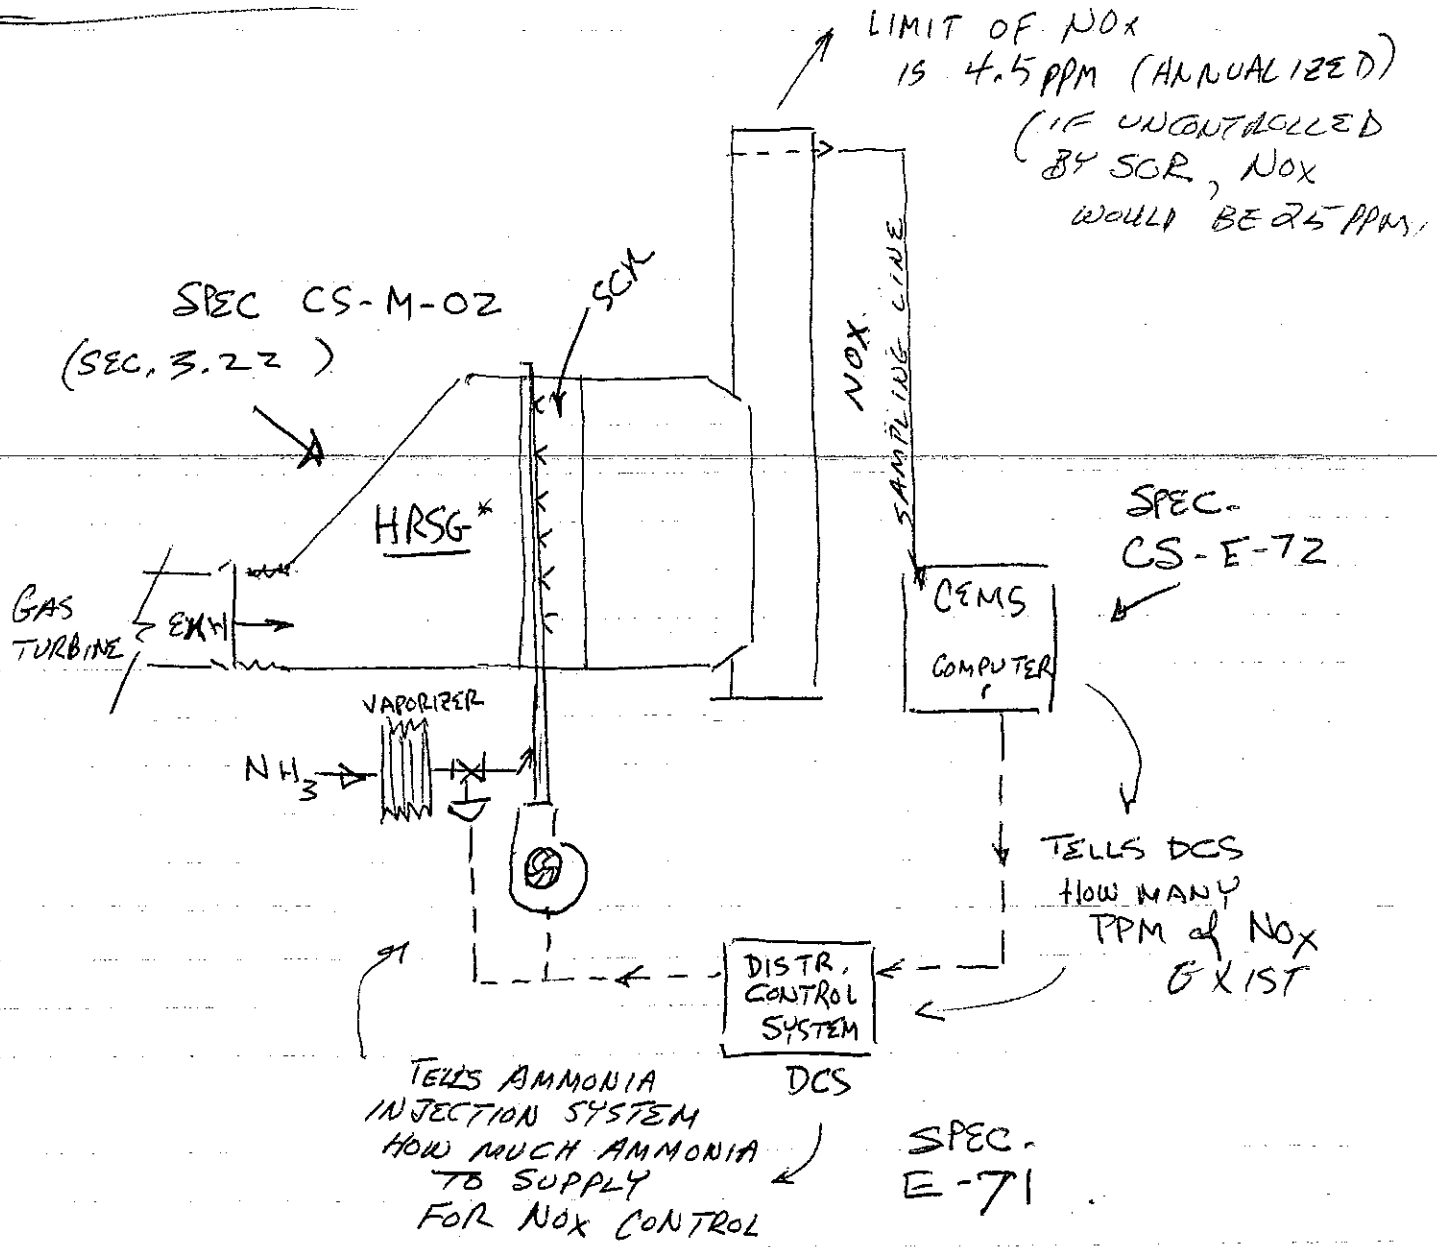 LIMIT OF NOX
IS 4.5 PPM (ANNUALIZED)
(IF UNCONTROLLED
BY SCR, NOX
WOULD BE 25 PPM.
SPEC CS-M-02
(SEC. 3.22)
SCR
NOX
SAMPLING LINE
HRSG*
SPEC.
CS-E-72
GAS
TURBINE
EXH
CEMS
COMPUTER
VAPORIZER
NH3
TELLS DCS
HOW MANY
PPM of NOX
EXIST
DISTR.
CONTROL
SYSTEM
DCS
TELLS AMMONIA
INJECTION SYSTEM
HOW MUCH AMMONIA
TO SUPPLY
FOR NOX CONTROL
SPEC.
E-71